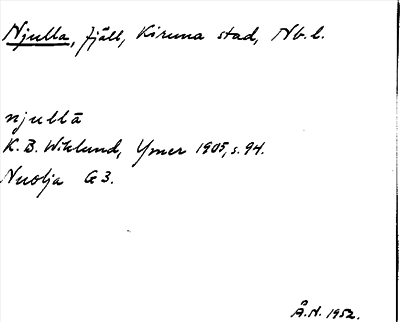 Njulla, fjäll, Kiruna stad, Nb.l.
njullā
K.B. Wiklund, Ymer 1905, s. 94.
Nuolja G3.
Å.N. 1952.